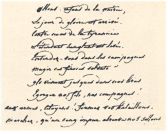 Allons, enfans de la patrie,
Le jour de gloire est arrivé.
Contre nous de la tyrannie
L'étendard sanglant est levé.
Entendez-vous dans les campagnes
mugir ces féroces soldats
ils viennent jusques dans vos bras
Egorger vos fils, vos compagnes
aux armes, citoyens, formez vos bataillons,
marchez, qu'un sang impur abreuve nos sillons